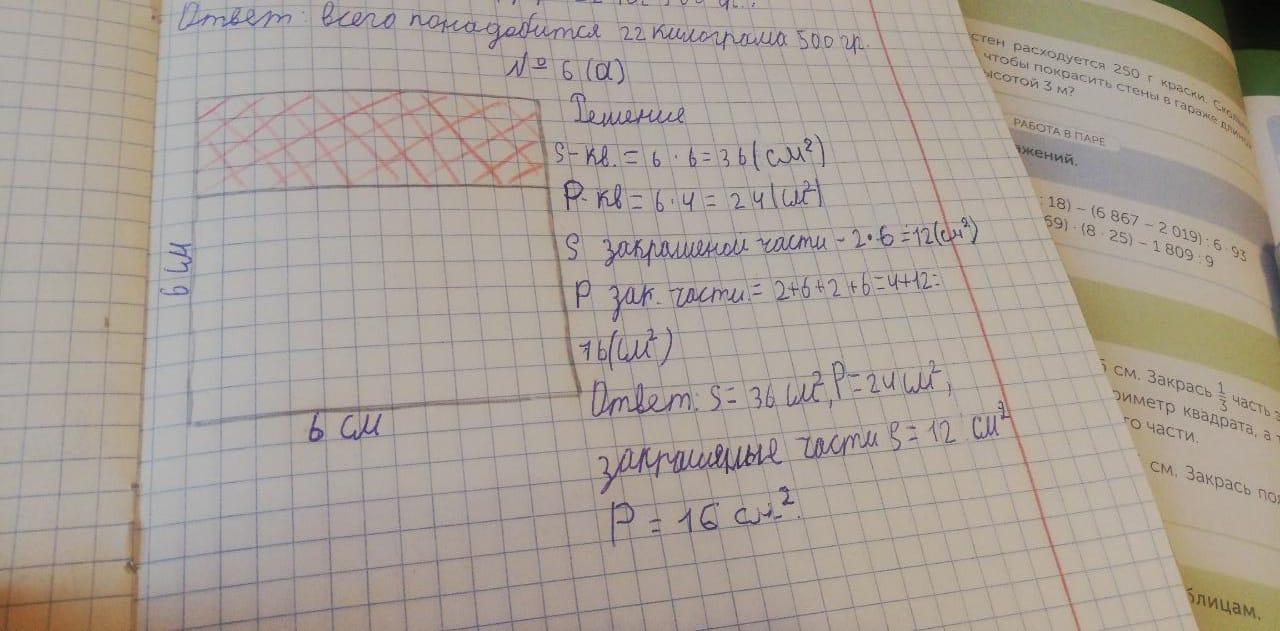 Ответ: всего понадобится 22 килограма 500 гр.
№ 6 (а)
Решение
S-кв. = 6 · 6 = 36 (см²)
P-кв = 6 · 4 = 24 (см²)
S закрашеной части - 2 · 6 = 12 (см²)
P зак. части = 2+6+2+6=4+12=
16 (см²)
Ответ: S = 36 см², P = 24 см²,
закрашеные части S = 12 см²
P = 16 см².
6 см
6 см
стен расходуется 250 г краски.
чтобы покрасить стены в гараже
ысотой 3 м?
РАБОТА В ПАРЕ
ажений.
: 18) – (6 867 – 2 019) : 6 · 93
69) · (8 · 25) – 1 809 : 9
см. Закрась 1/3 часть
риметр квадрата, а
го части.
см. Закрась
блицам.